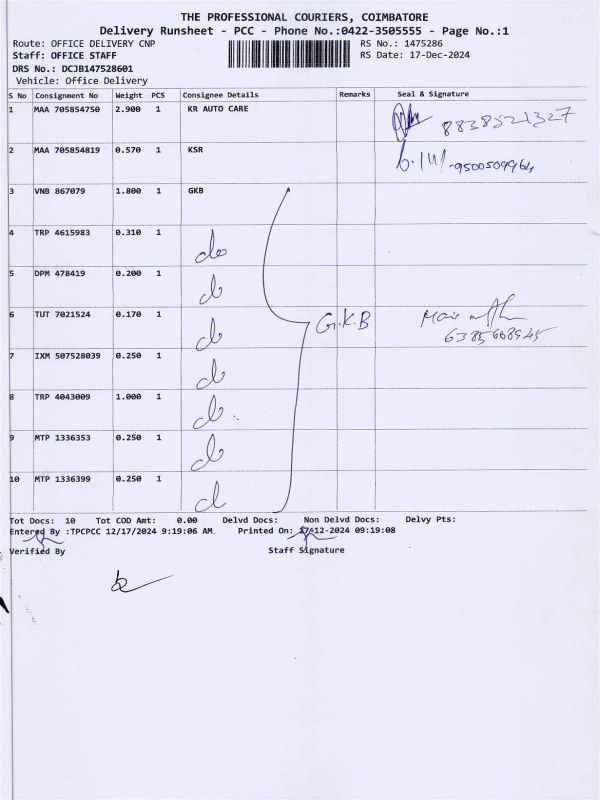 THE PROFESSIONAL COURIERS, COIMBATORE
Delivery Runsheet - PCC - Phone No.:0422-3505555 - Page No.:1
Route: OFFICE DELIVERY CNP RS No.: 1475286
Staff: OFFICE STAFF RS Date: 17-Dec-2024
DRS No.: DCJB147528601
Vehicle: Office Delivery
S No Consignment No Weight PCS Consignee Details Remarks Seal & Signature
1 MAA 705854750 2.900 1 KR AUTO CARE 8838521327
2 MAA 705854819 0.570 1 KSR 9500509964
3 VNB 867079 1.800 1 GKB
4 TRP 4615983 0.310 1 do
5 DPM 478419 0.200 1 do
6 TUT 7021524 0.170 1 do G.K.B
7 IXM 507528039 0.250 1 do
8 TRP 4043009 1.000 1 do
9 MTP 1336353 0.250 1 do
10 MTP 1336399 0.250 1 do
Tot Docs: 10 Tot COD Amt: 0.00 Delvd Docs: Non Delvd Docs: Delvy Pts:
Entered By :TPCPCC 12/17/2024 9:19:06 AM Printed On: 17-12-2024 09:19:08
Verified By Staff Signature